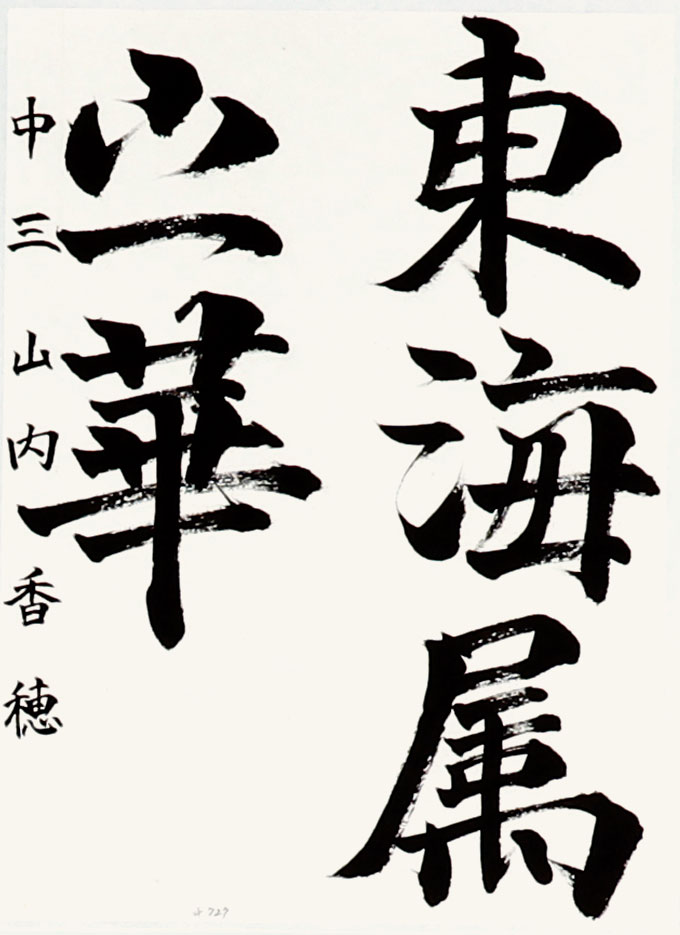 東海属
華
中三 山内香穂